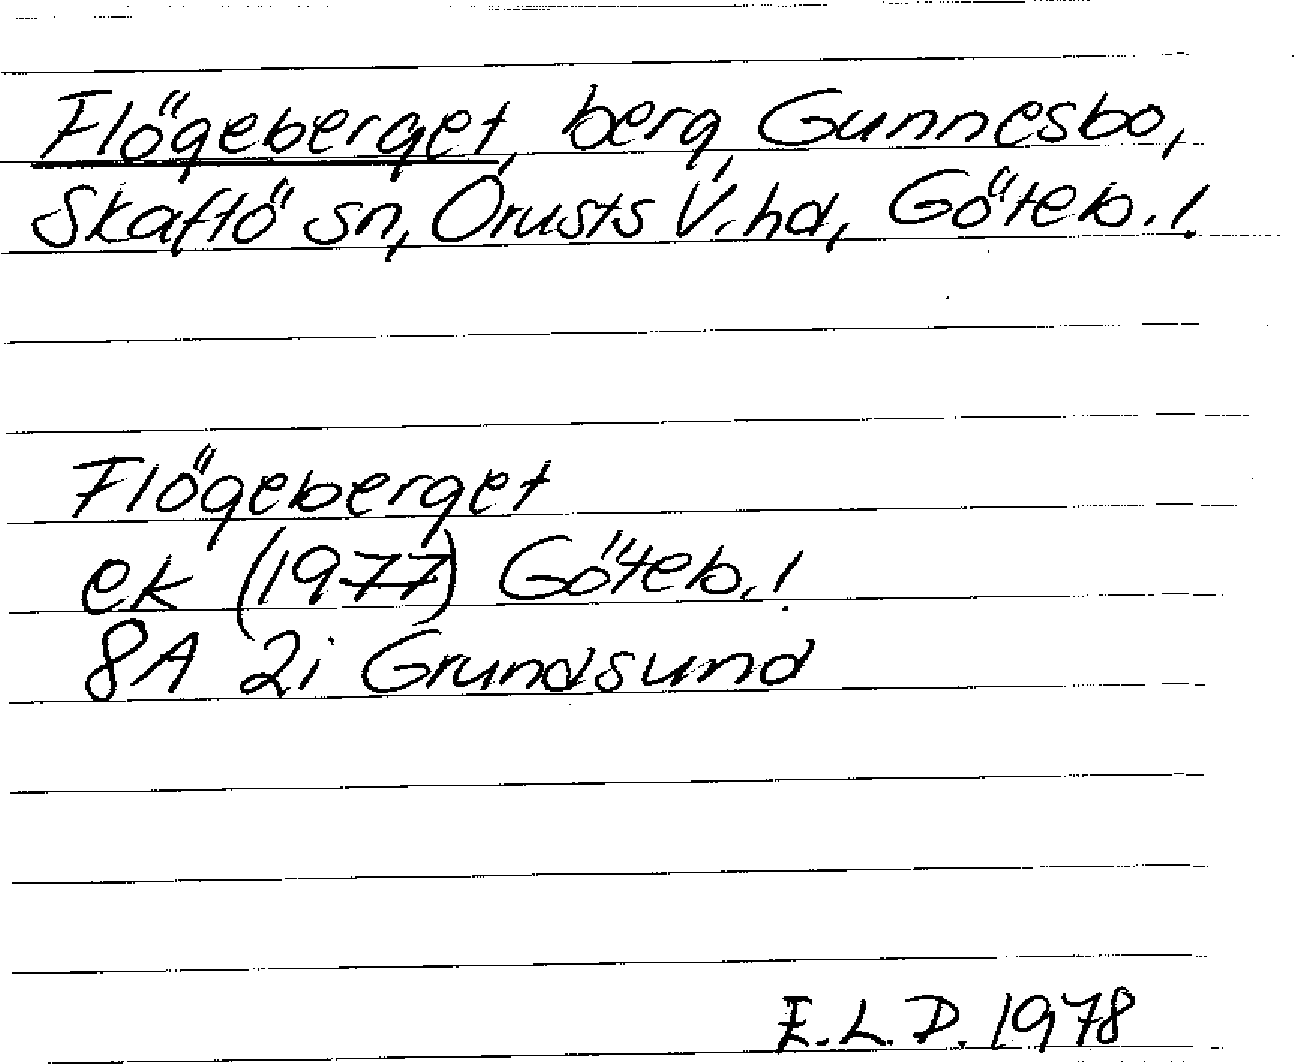 Flögeberget, berg, Gunnesbo,
Skaftö sn, Orusts V. hd, Göteb. l.
Flögeberget
ek (1977) Göteb. l.
8A 2i Grundsund
E.L.D. 1978